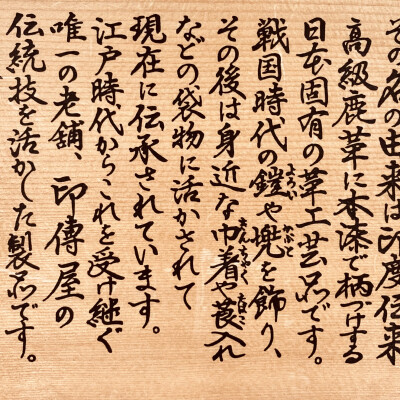 その名の由来は印度伝来
高級鹿革に本漆で柄づけする
日本固有の革工芸品です。
戦国時代の鎧や兜を飾り、
その後は身近な巾着や莨入れ
などの袋物に活かされて
現在に伝承されています。
江戸時代からこれを受け継ぐ
唯一の老舗、印傳屋の
伝統技を活かした製品です。